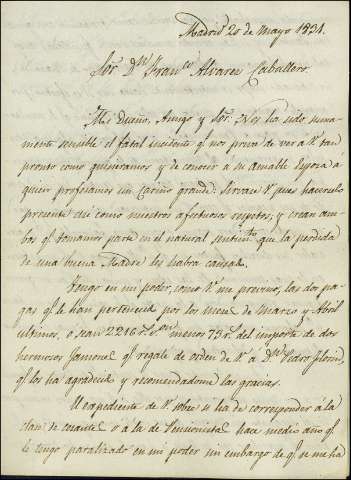 Madrid 20 de Mayo 1834.
Sor. Dn. Franco. Alvarez Caballero.
Mi Dueño, Amigo y Sor.: Nos ha sido suma-
mente sensible el fatal incidente q. nos priva de ver a V. tan
pronto como quisieramos y de conocer a su amable Esposa a
quien profesamos un cariño grande: sirvase V. pues hacerselo
presente asi como nuestros afectuosos respetos; y crean am-
bos q. tomamos parte en el natural sentimto. que la perdida
de una buena Madre les habra causado.
Tengo en mi poder, como V. me previno, las dos pa-
gas q. le han pertenecido por los meses de marzo y Abril
ultimos, o sean 2216 rs. menos 73 rs. del importe de dos
hermosos jamones q. regalé de orden de V. a Dn. Pedro
q. los ha agradecido y recomendadome las gracias.
El expediente de V. sobre si ha de corresponder a la
clase de cesante o a la de Pensionista hace medio año q.
le tengo paralizado en mi poder sin embargo de q. se me ha